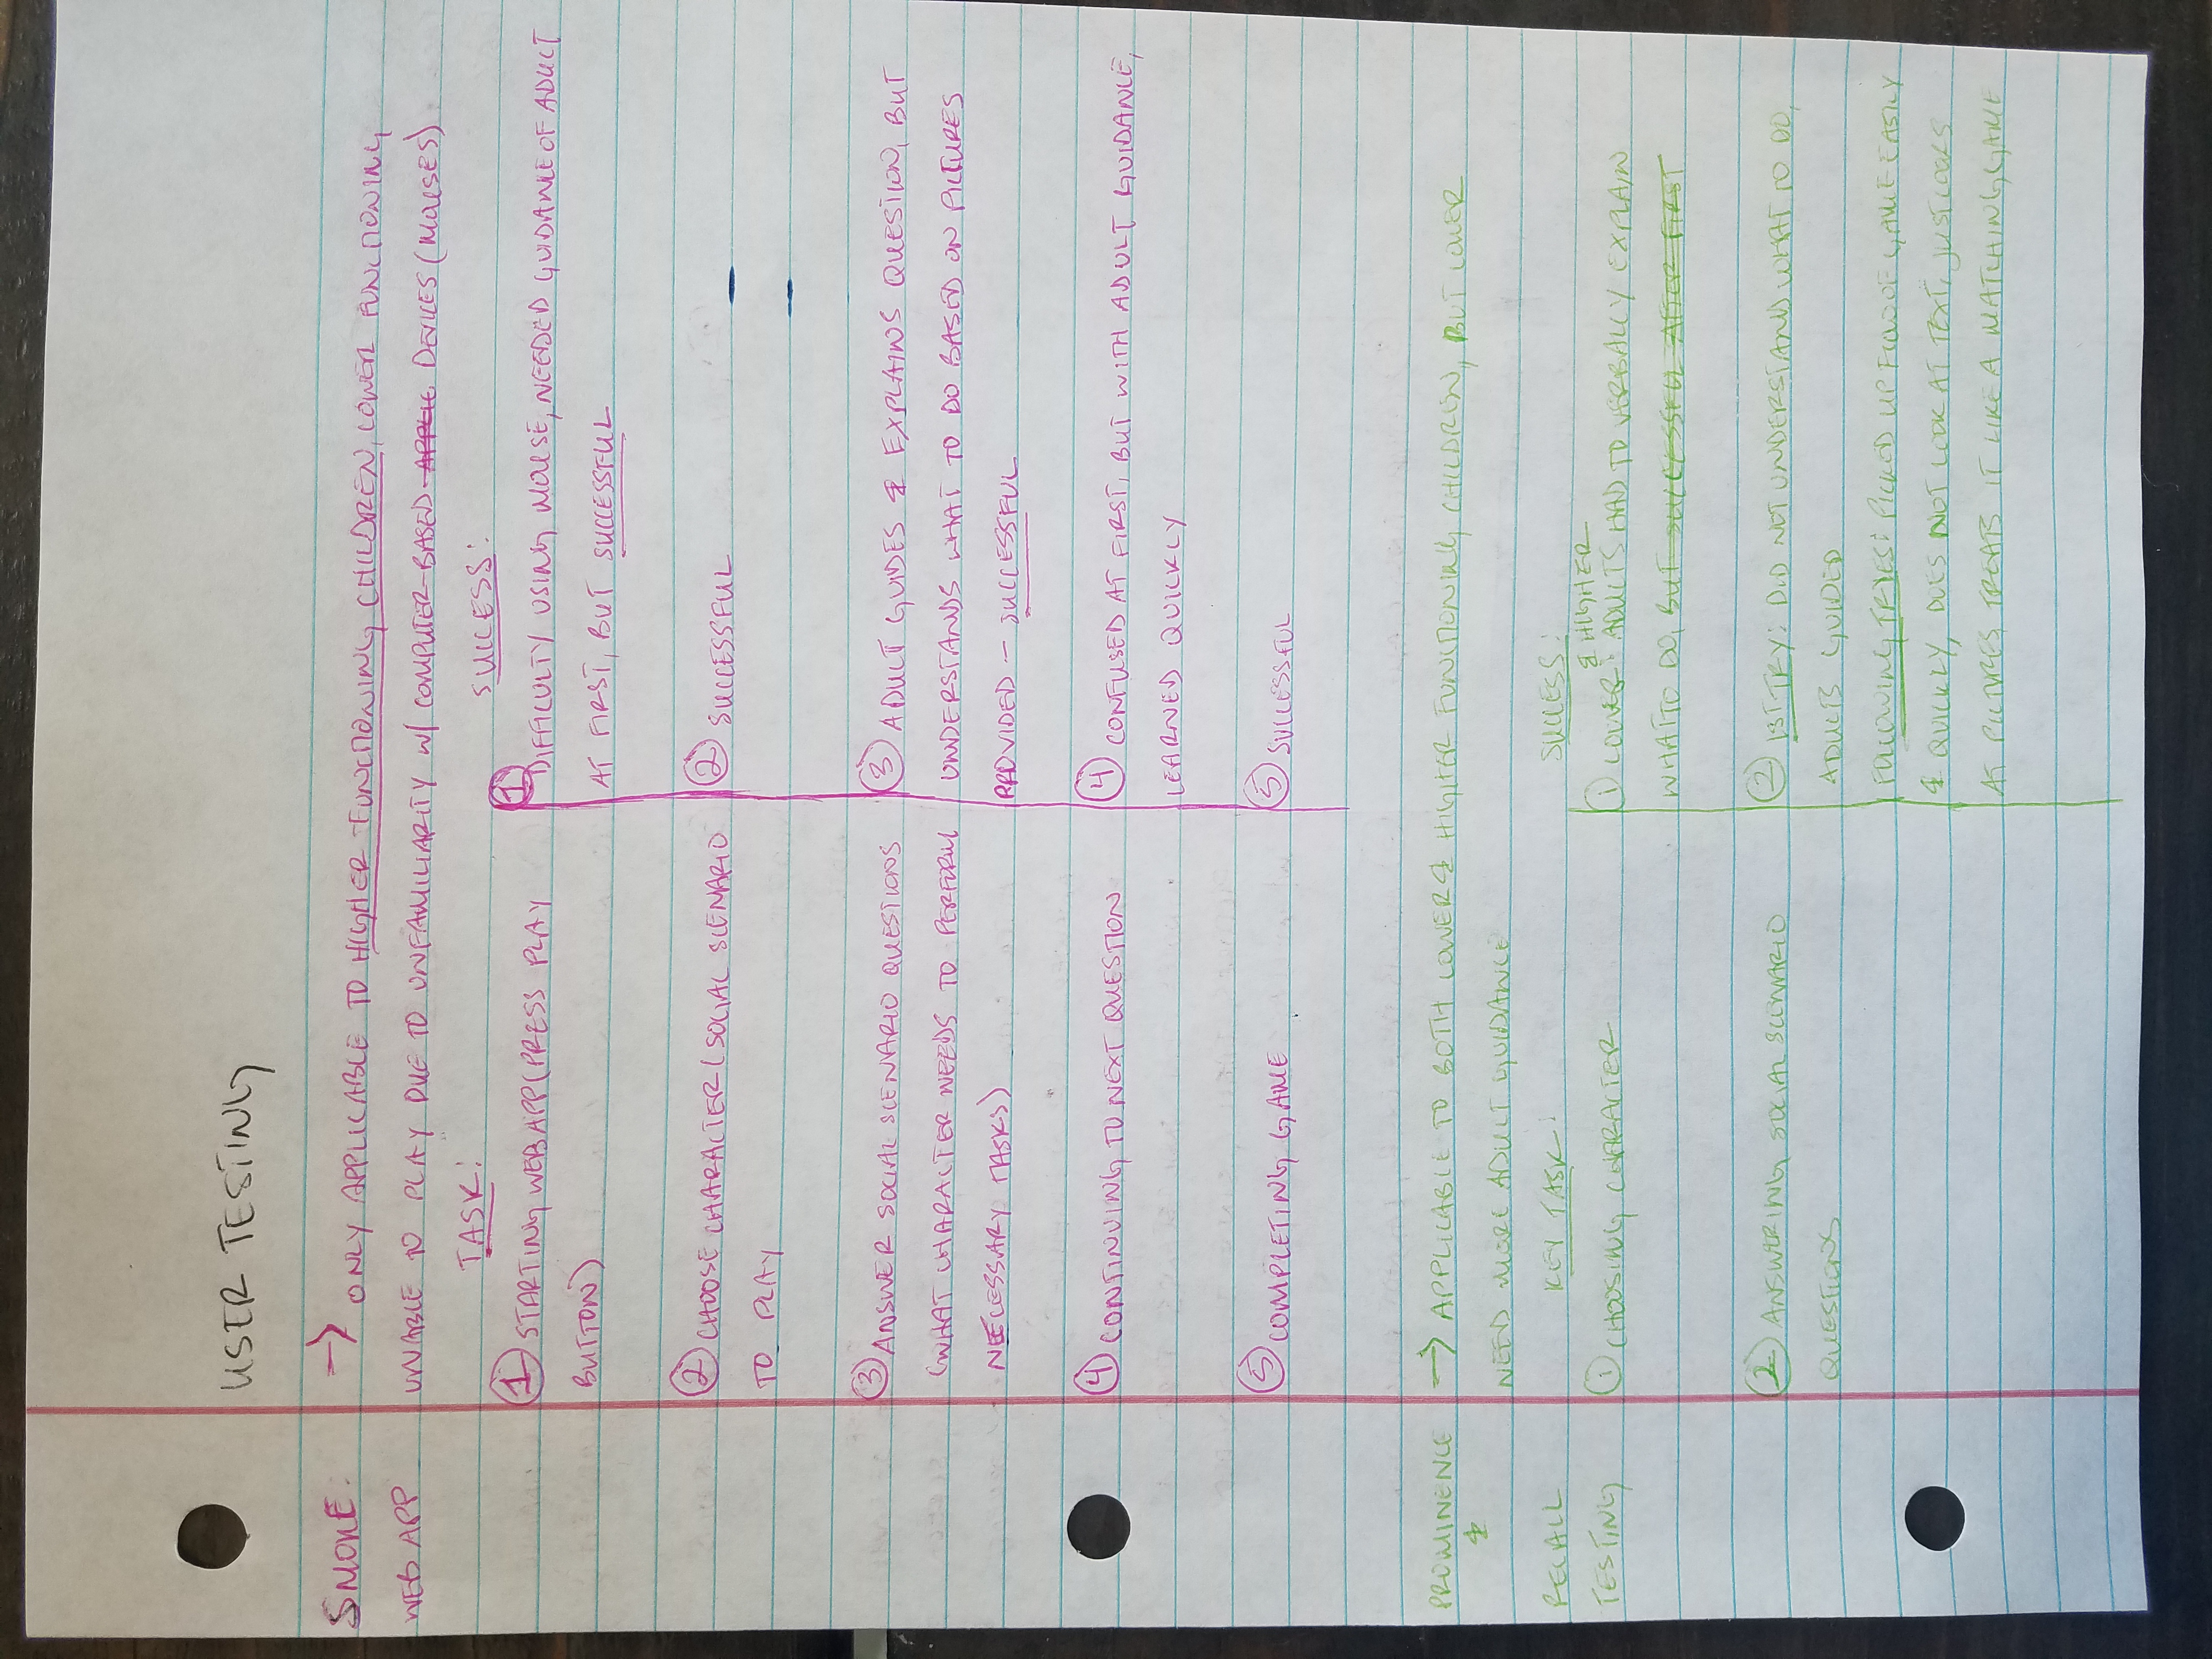 USER TESTING
SMOKE:
WEB APP
→ ONLY APPLICABLE TO HIGHER FUNCTIONING CHILDREN, LOWER FUNCTIONING
UNABLE TO PLAY DUE TO UNFAMILIARITY W/ COMPUTER-BASED APPLIC DEVICES (MOUSES)
TASK:
① STARTING WEB APP (PRESS PLAY
BUTTON)
② CHOOSE CHARACTER (SOCIAL SCENARIO
TO PLAY
③ ANSWER SOCIAL SCENARIO QUESTIONS
(WHAT CHARACTER NEEDS TO PERFORM
NECESSARY TASKS)
④ CONTINUING TO NEXT QUESTION
⑤ COMPLETING GAME
SUCCESS:
① DIFFICULTY USING MOUSE, NEEDED GUIDANCE OF ADULT
AT FIRST, BUT SUCCESSFUL
② SUCCESSFUL
③ ADULT GUIDES & EXPLAINS QUESTION, BUT
UNDERSTANDS WHAT TO DO BASED ON PICTURES
PROVIDED – SUCCESSFUL
④ CONFUSED AT FIRST, BUT WITH ADULT GUIDANCE,
LEARNED QUICKLY
⑤ SUCCESSFUL
PROMINENCE
&
RECALL
TESTING
→ APPLICABLE TO BOTH LOWER & HIGHER FUNCTIONING CHILDREN, BUT LOWER
NEED MORE ADULT GUIDANCE
KEY TASK:
① CHOOSING CHARACTER
② ANSWERING SOCIAL SCENARIO
QUESTIONS
SUCCESS:
& HIGHER
① LOWER: ADULTS HAD TO VERBALLY EXPLAIN
WHAT TO DO, BUT SUCCESSFUL AFTER FIRST
② 1ST TRY: DID NOT UNDERSTAND WHAT TO DO,
ADULTS GUIDED
FOLLOWING TRYES: PICKED UP FLOW OF GAME EASILY
& QUICKLY, DOES NOT LOOK AT TEXT, JUST LOOKS
AT PICTURES, TREATS IT LIKE A MATCHING GAME